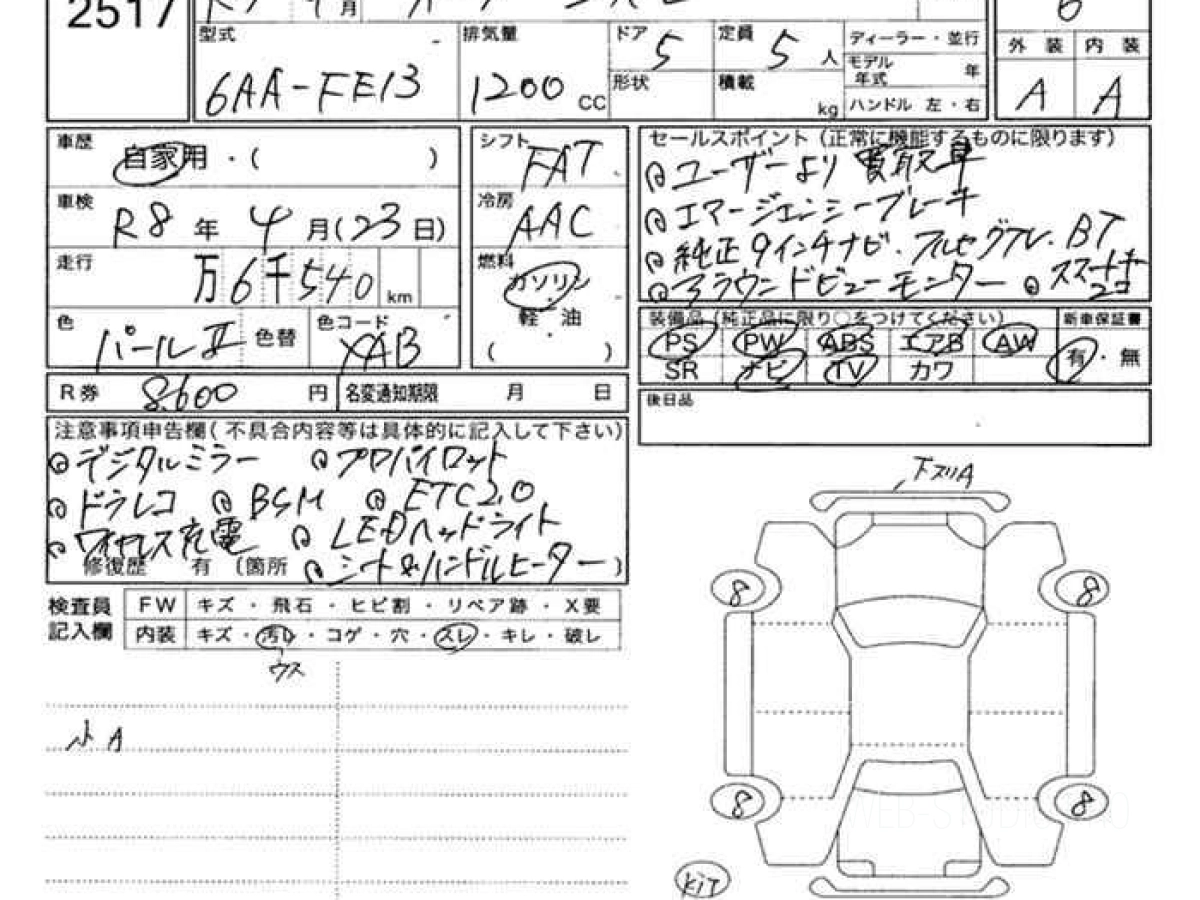 2517
月
6
型式
排気量
ドア
5
定員
5人
ディーラー・並行
外装
内装
6AA-FE13
1200 CC
モデル年式
年
A
A
形状
積載
kg
ハンドル 左・右
車歴
自家用・( )
シフト
FAT
セールスポイント(正常に機能するものに限ります)
ユーザーより買取車
車検
R8年4月(23日)
冷房
AAC
エマージェンシーブレーキ
走行
万6千540km
燃料
ガソリン
純正9インチナビ.フルセグTV.BT
アラウンドビューモンター
スマートキー2コ
色
パールII
色替
色コード
XAB
軽・油
( )
装備品(純正品に限り○をつけてください)
新車保証書
PS
PW
ABS
エアB
AW
有・無
SR
ナビ
TV
カワ
R券
8.600円
名変通知期限
月
日
後日品
注意事項申告欄(不具合内容等は具体的に記入して下さい)
デジタルミラー
プロパイロット
ドラレコ
BSM
ETC2.0
ワイヤレス充電
LEDヘッドライト
修復歴 有 (箇所
シート&ハンドルヒーター)
検査員記入欄
FW
キズ・飛石・ヒビ割・リペア跡・X要
内装
キズ・汚レ・コゲ・穴・スレ・キレ・破レ
ウス
小A
下スリA
8
8
8
8
KIT